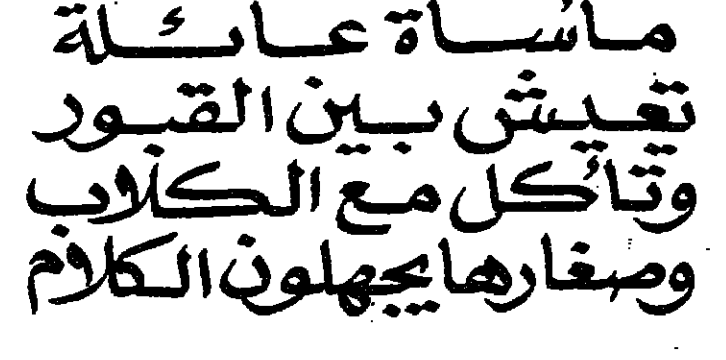 مأساة عائلة
تعيش بين القبور
وتأكل مع الكلاب
وصغارها يجهلون الكلام